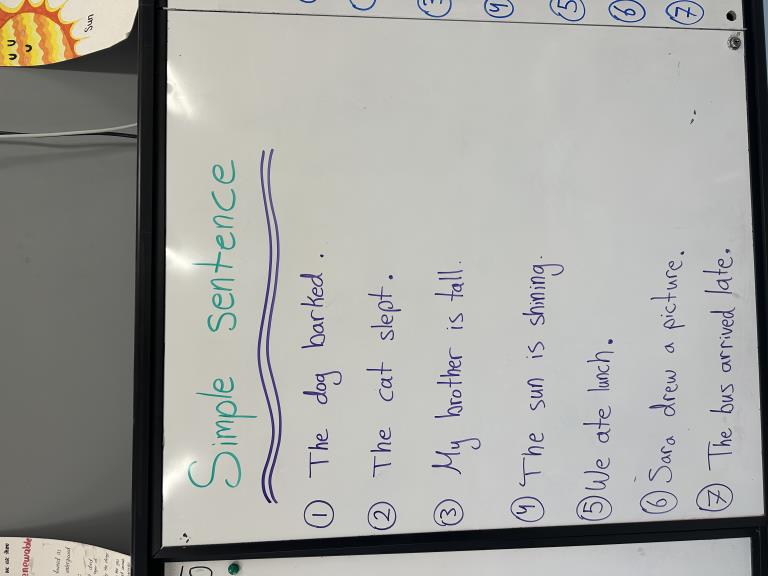 Simple sentence
① The dog barked.
② The cat slept.
③ My brother is tall.
④ The sun is shining.
⑤ We ate lunch.
⑥ Sara drew a picture.
⑦ The bus arrived late.
③
④
⑤
⑥
⑦
Sun